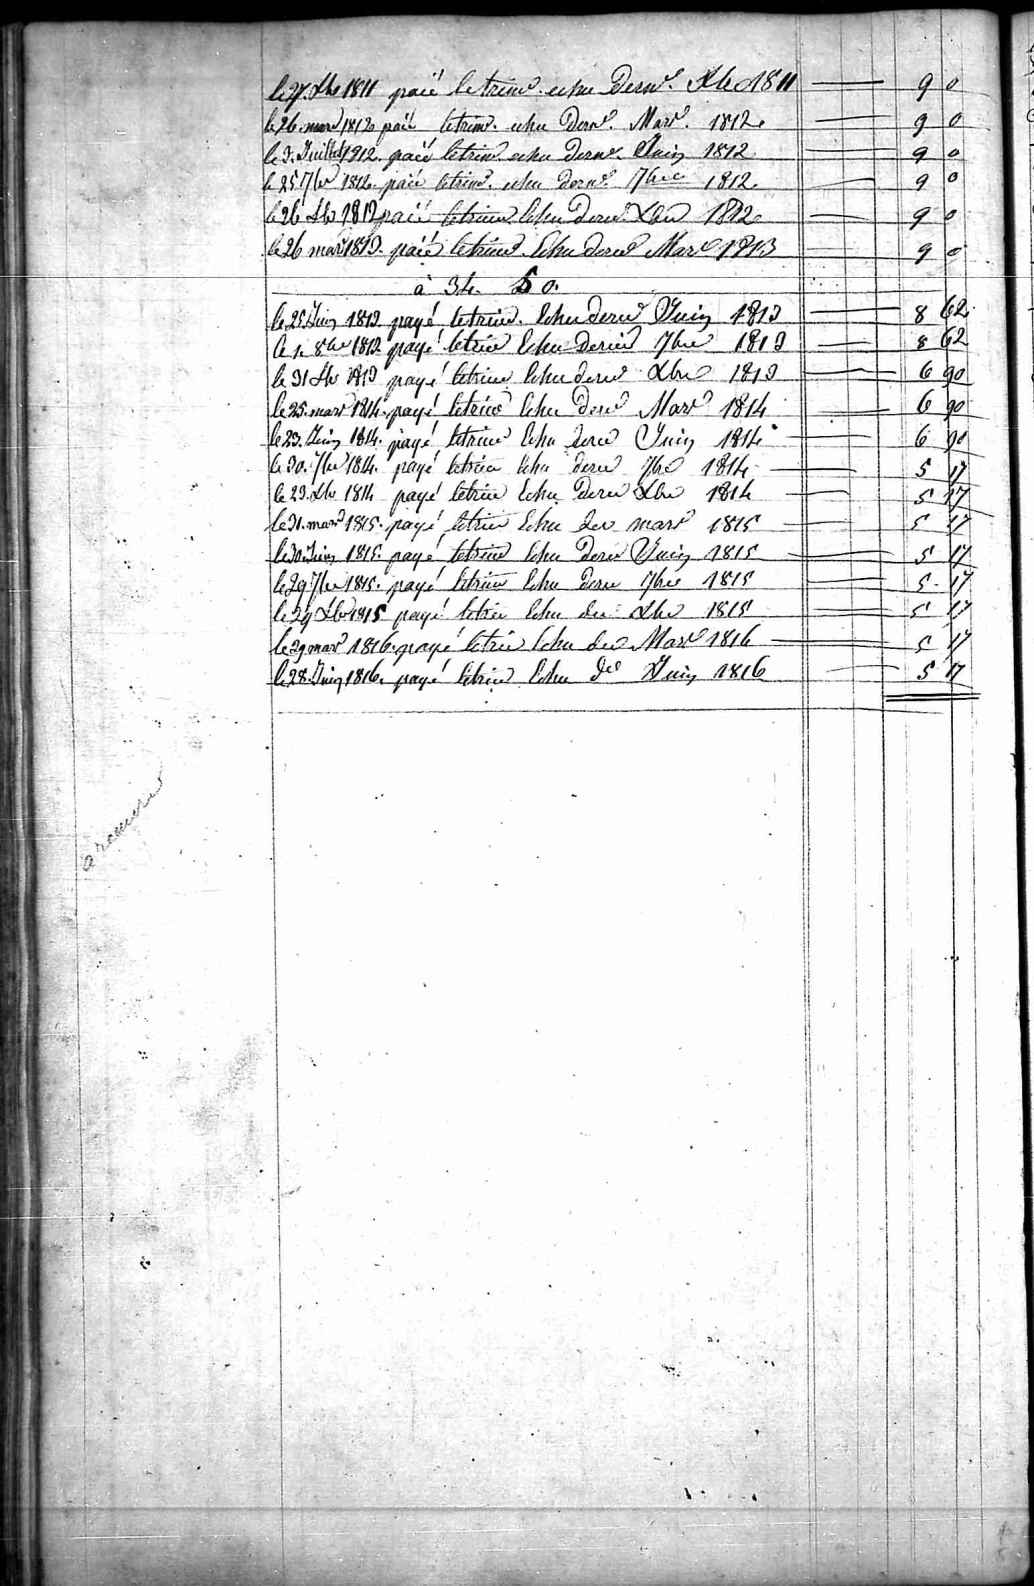 le 27. Xbre 1811 paié le trim.e echu Dern.r Xbre 1811 9 0
le 26. mars 1812 paié le trim.e echu Dern.r Mars. 1812. 9 0
le 3. Juillet 1812. paié le trim.e echu dern.r Juin 1812 9 0
le 25 7bre 1812. paié le trim.e echu dern.r 7bre 1812. 9 0
le 26 Xbre 1812 paié le trim Echu dern Xbre 1812 9 0
le 26 mars 1813. paié le trim Echu dern Mars 1813 9 0
à 34. 50.
le 25 Juin 1813 payé le trim. Echu dern Juin 1813 8 62.
le 1. 8bre 1813 payé le trim Echu dernier 7bre 1813 8 62
le 31 Xbre 1813 payé le trim Echu dern Xbre 1813 6 90
le 25. mars 1814. payé le trim Echu Dern Mars 1814 6 90
le 23. Juin 1814. payé le trim Echu dern Juin 1814 6 90
le 30. 7bre 1814. payé le trim Echu dern 7bre 1814 5 17
le 23. Xbre 1814 payé le trim Echu Dern Xbre 1814 5 17
le 31. mars 1815. payé le trim Echu der mars 1815 5 17
le 30. Juin 1815. payé le trim Echu Dern Juin 1815 5 17
le 29 7bre 1815. payé le trim Echu Dern 7bre 1815 5 17
le 29 Xbre 1815 payé le trim Echu der Xbre 1815 5 17
le 29 mars 1816. payé le trim Echu der Mars 1816 5 17
le 28. Juin 1816. payé le trim Echu der Juin 1816 5 17